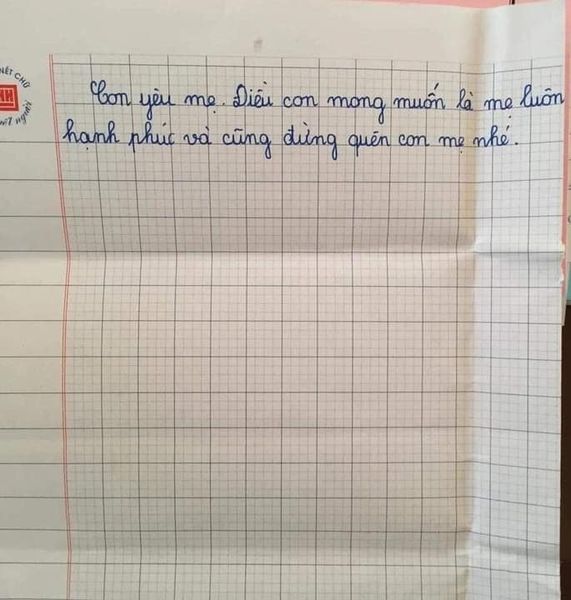 NÉT CHỮ
NH
nết người
Con yêu mẹ. Điều con mong muốn là mẹ luôn
hạnh phúc và cũng đừng quên con mẹ nhé.